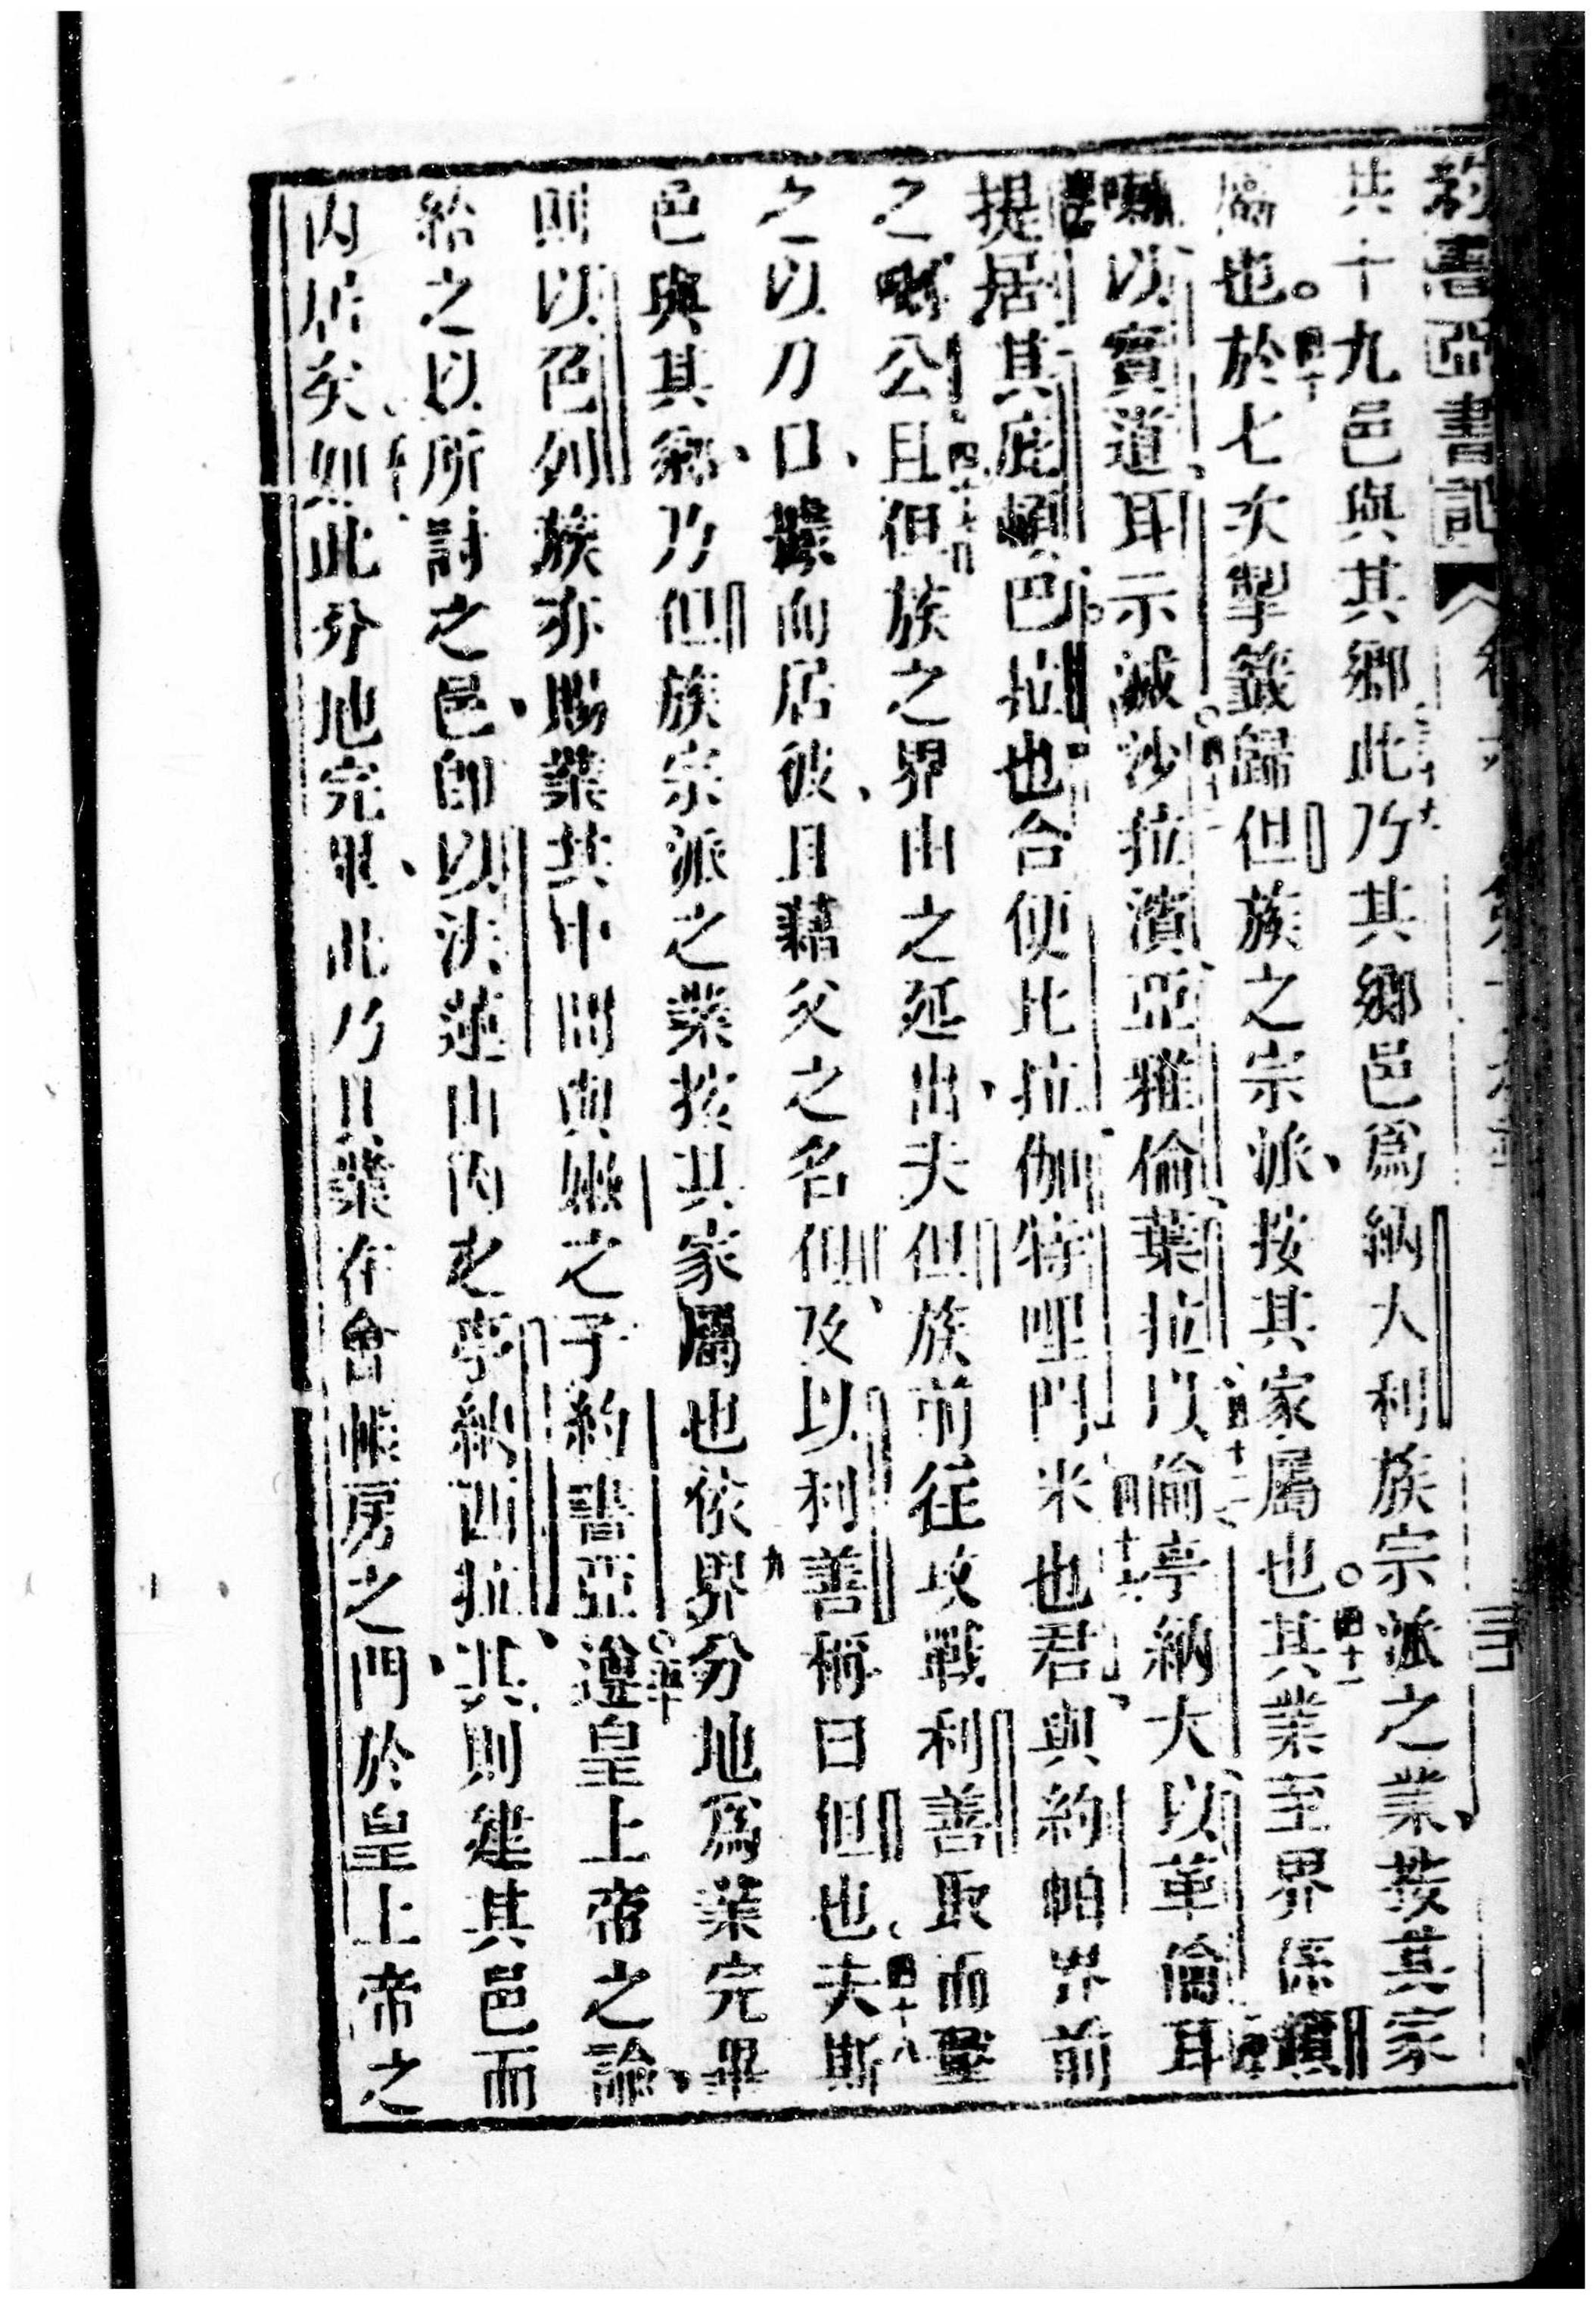 約書亞書記
共十九邑與其鄉此乃其鄉邑爲納大利族宗派之業按其家
屬也。四十於七次掣籤歸但族之宗派、按其家屬也。四十一其業至界係
以實道、耳示滅沙拉濱、亞雅倫、葉拉以倫、亭納大、以革倫、耳
提居其庇頓、巴拉也合、使比拉伽特哩門、米也君、與約帕界前
之公且四十七但族之界由之延出、夫但族前往攻戰利善取而擊
之以刀口、據而居彼、且藉父之名但、及以利善稱曰但也、四十八夫斯
邑與其鄉、乃但族宗派之業按其家屬也四十九依界分地爲業完畢
則以色列族亦賜業其中間與嫩之子約書亞。五十遵皇上帝之諭、
給之以所討之邑、即以法蓮山內之亭納西拉、其則建其邑而
內居矣、五十一如此分地完畢、此乃其業在會帳房之門、於皇上帝之